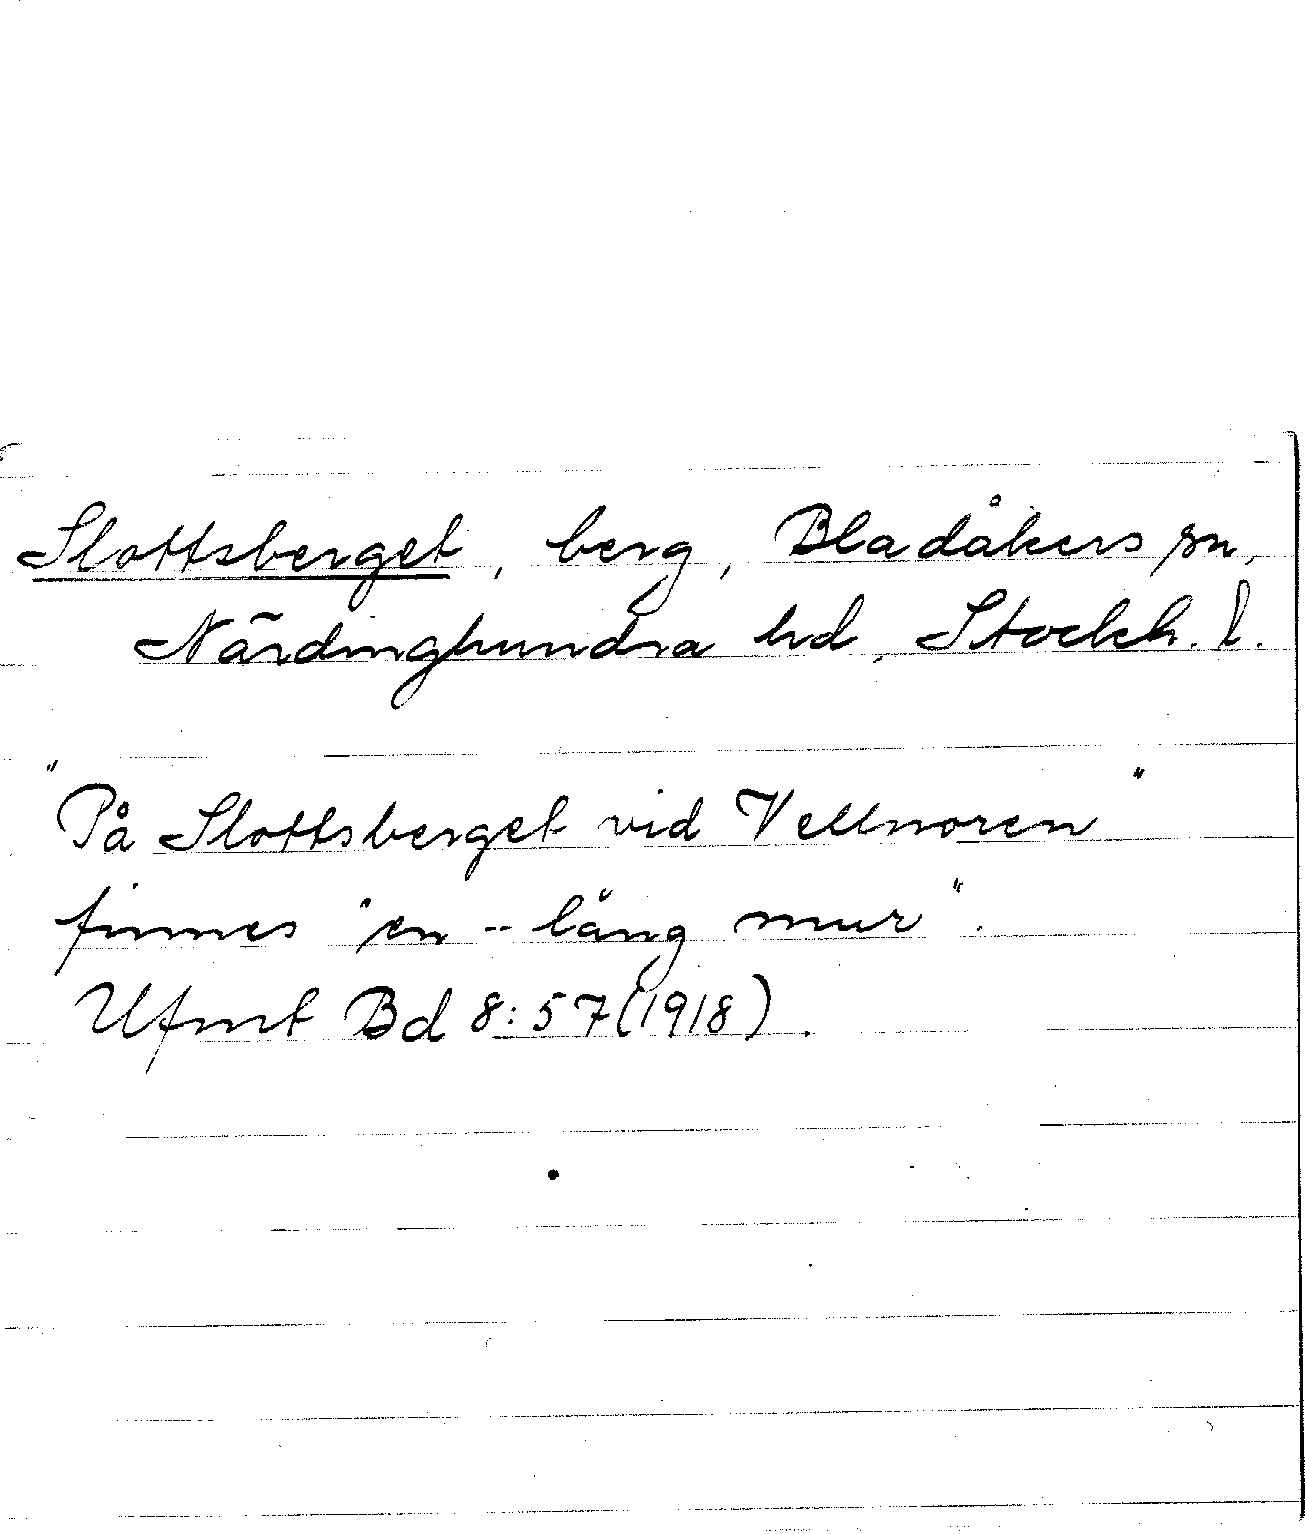 Slottsberget, berg, Bladåkers sn,
Närdinghundra hd, Stockh. l.
"På Slottsberget vid Vellnoren"
finnes "en -- lång mur".
Ufmt Bd 8:57 (1918).